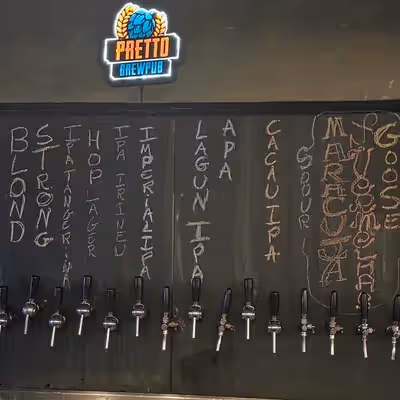 PRETTO
BREWPUB
BLOND
STRONG
IPA TANGERINA
HOP LAGER
IPA IRINEU
IMPERIAL IPA
LAGUN IPA
APA
CACAU IPA
SOUR
MARACUJA
GOOSE